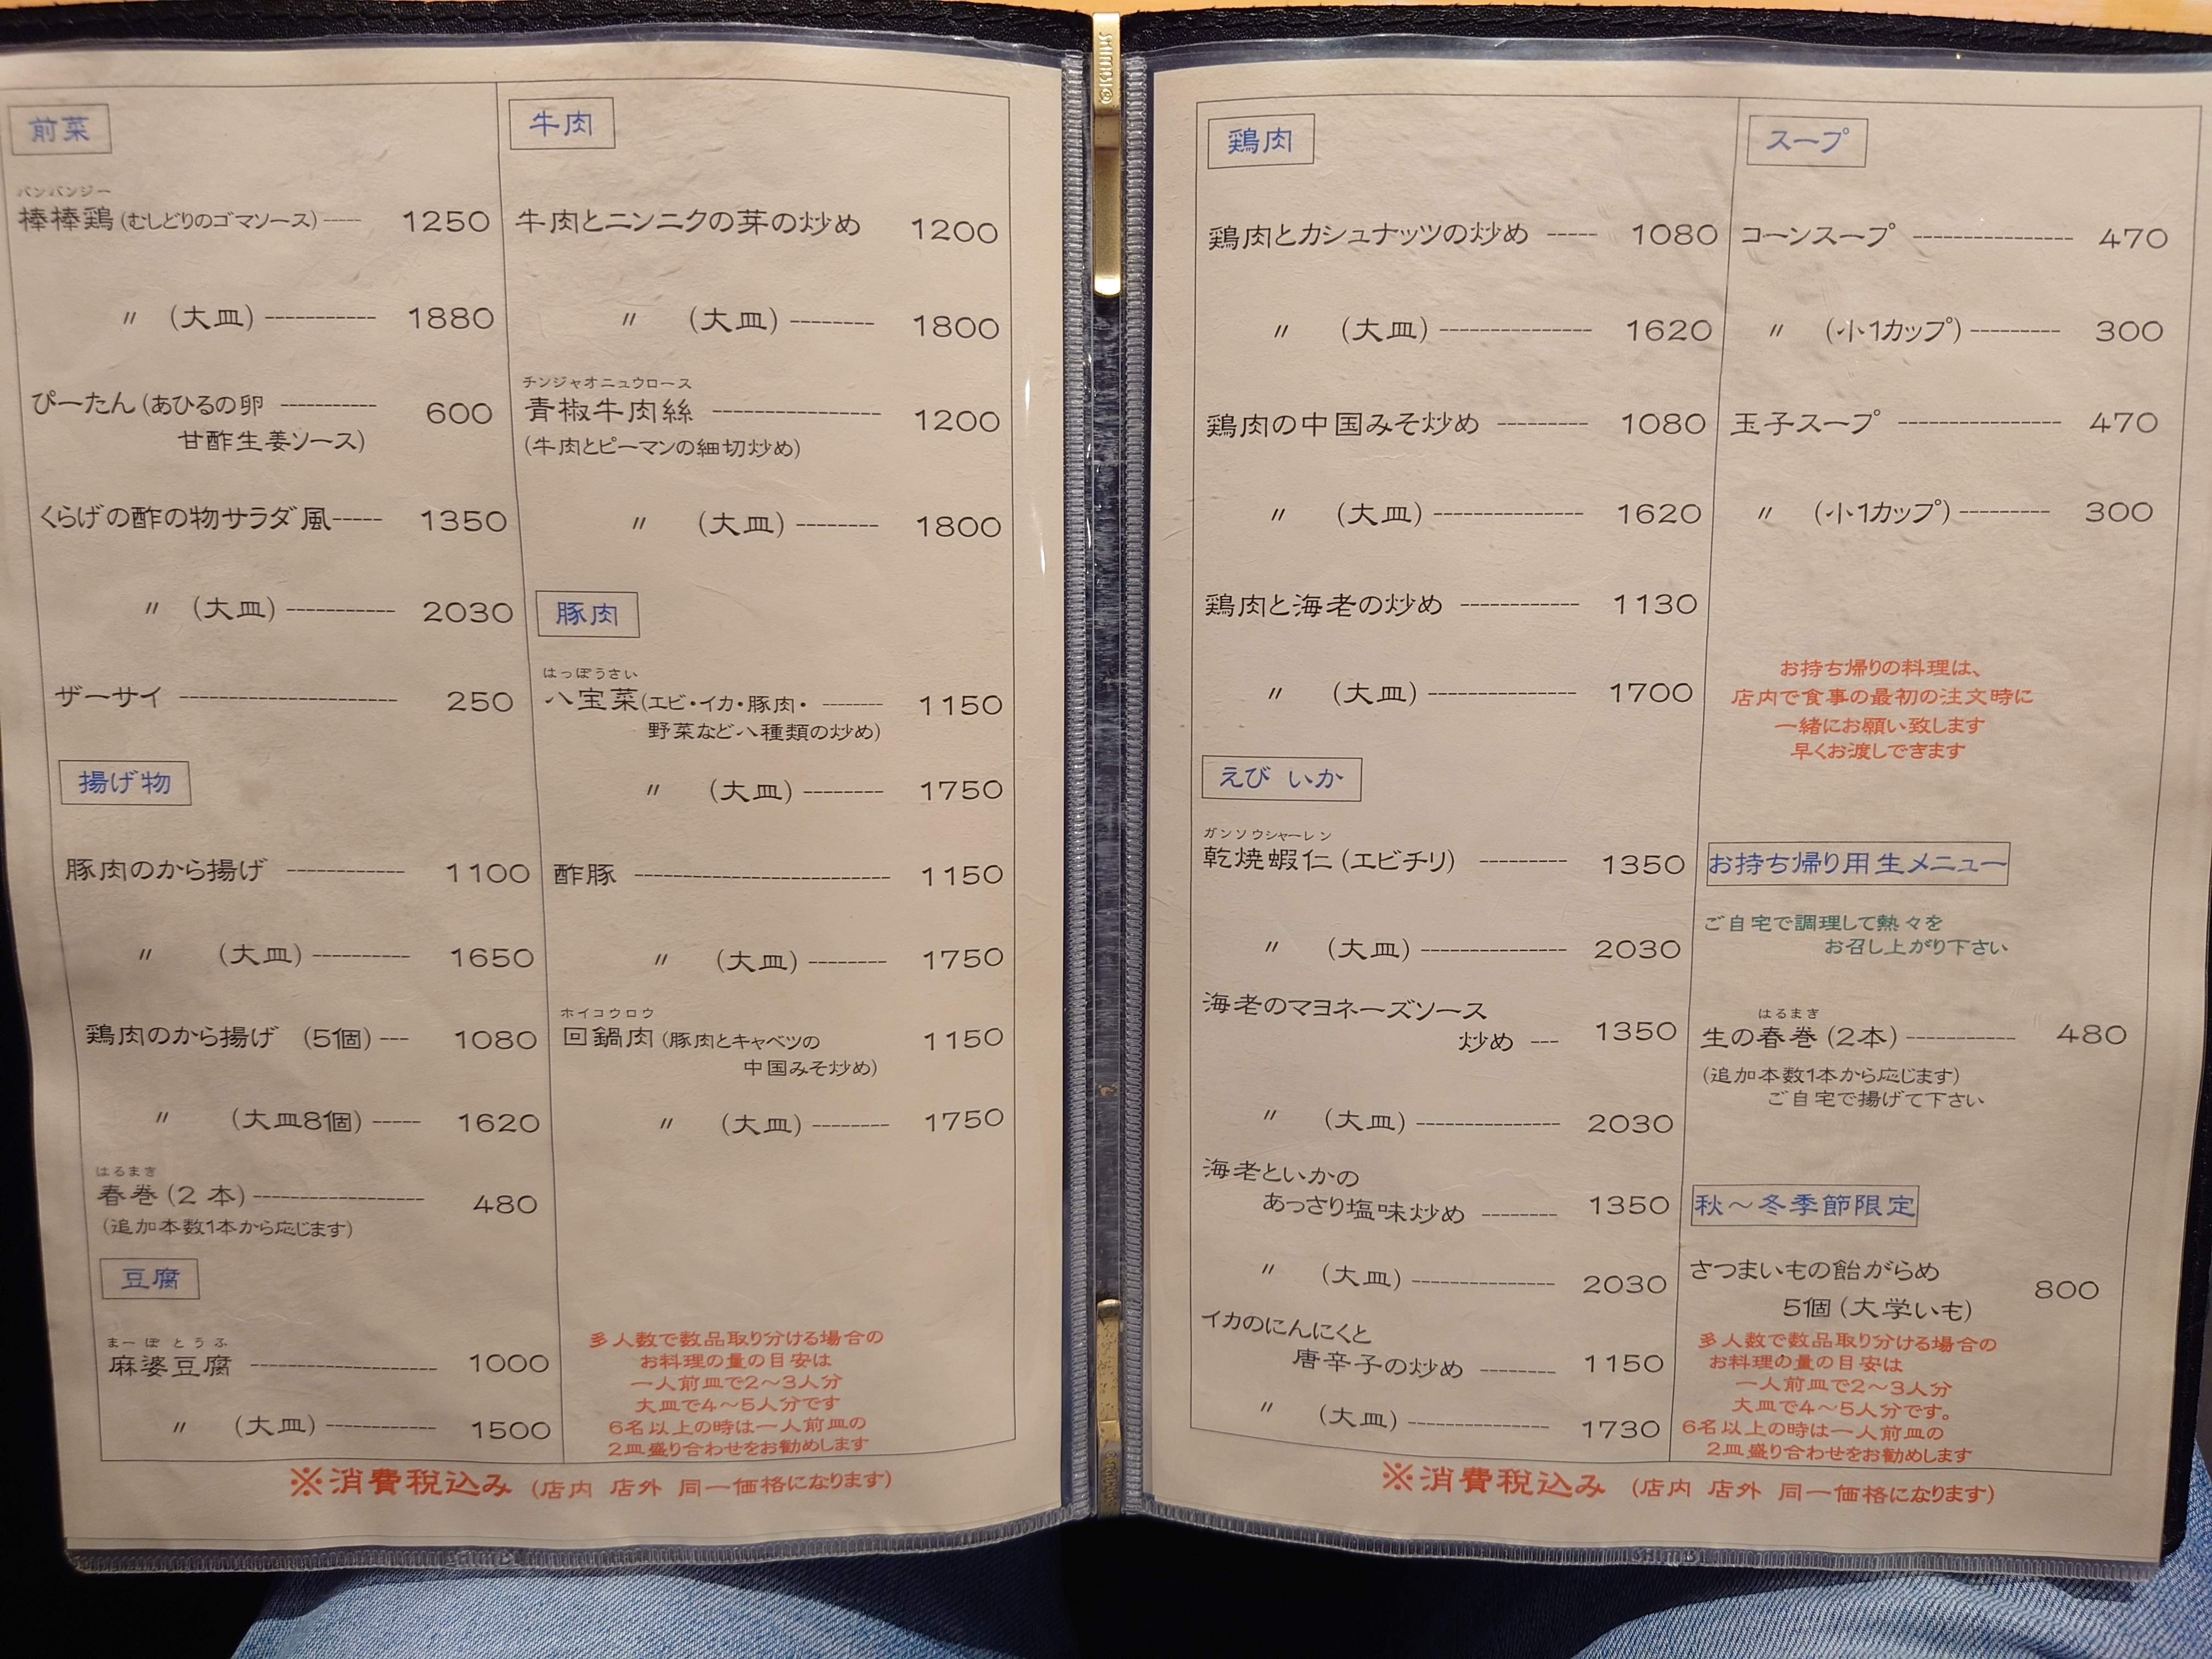 前菜
バンバンジー
棒棒鶏(むしどりのゴマソース)---- 1250
〃 (大皿)----------- 1880
ぴーたん(あひるの卵 ----------- 600
甘酢生姜ソース)
くらげの酢の物サラダ風----- 1350
〃 (大皿)----------- 2030
ザーサイ ---------------------- 250
揚げ物
豚肉のから揚げ ------------ 1100
〃 (大皿)---------- 1650
鶏肉のから揚げ (5個)--- 1080
〃 (大皿8個)----- 1620
はるまき
春巻(2本)------------------ 480
(追加本数1本から応じます)
豆腐
まーぼとうふ
麻婆豆腐 ------------------- 1000
〃 (大皿)----------- 1500
牛肉
牛肉とニンニクの芽の炒め 1200
〃 (大皿)-------- 1800
チンジャオニュウロース
青椒牛肉絲 ---------------- 1200
(牛肉とピーマンの細切炒め)
〃 (大皿)-------- 1800
豚肉
はっぽうさい
八宝菜(エビ・イカ・豚肉・ ------- 1150
野菜など八種類の炒め)
〃 (大皿)-------- 1750
酢豚 ------------------------- 1150
〃 (大皿)-------- 1750
ホイコウロウ
回鍋肉(豚肉とキャベツの 1150
中国みそ炒め)
〃 (大皿)-------- 1750
多人数で数品取り分ける場合の
お料理の量の目安は
一人前皿で2〜3人分
大皿で4〜5人分です
6名以上の時は一人前皿の
2皿盛り合わせをお勧めします
※消費税込み (店内 店外 同一価格になります)
SHIMBI®
鶏肉
鶏肉とカシュナッツの炒め ----- 1080
〃 (大皿)--------------- 1620
鶏肉の中国みそ炒め --------- 1080
〃 (大皿)--------------- 1620
鶏肉と海老の炒め ------------ 1130
〃 (大皿)--------------- 1700
えび いか
ガンソウシャーレン
乾焼蝦仁(エビチリ) --------- 1350
〃 (大皿)--------------- 2030
海老のマヨネーズソース
炒め --- 1350
〃 (大皿)--------------- 2030
海老といかの
あっさり塩味炒め -------- 1350
〃 (大皿)--------------- 2030
イカのにんにくと
唐辛子の炒め -------- 1150
〃 (大皿)--------------- 1730
スープ
コーンスープ ---------------- 470
〃 (小1カップ)--------- 300
玉子スープ ---------------- 470
〃 (小1カップ)--------- 300
お持ち帰りの料理は、
店内で食事の最初の注文時に
一緒にお願い致します
早くお渡しできます
お持ち帰り用生メニュー
ご自宅で調理して熱々を
お召し上がり下さい
はるまき
生の春巻(2本)----------- 480
(追加本数1本から応じます)
ご自宅で揚げて下さい
秋〜冬季節限定
さつまいもの飴がらめ
5個(大学いも) 800
多人数で数品取り分ける場合の
お料理の量の目安は
一人前皿で2〜3人分
大皿で4〜5人分です。
6名以上の時は一人前皿の
2皿盛り合わせをお勧めします
※消費税込み (店内 店外 同一価格になります)